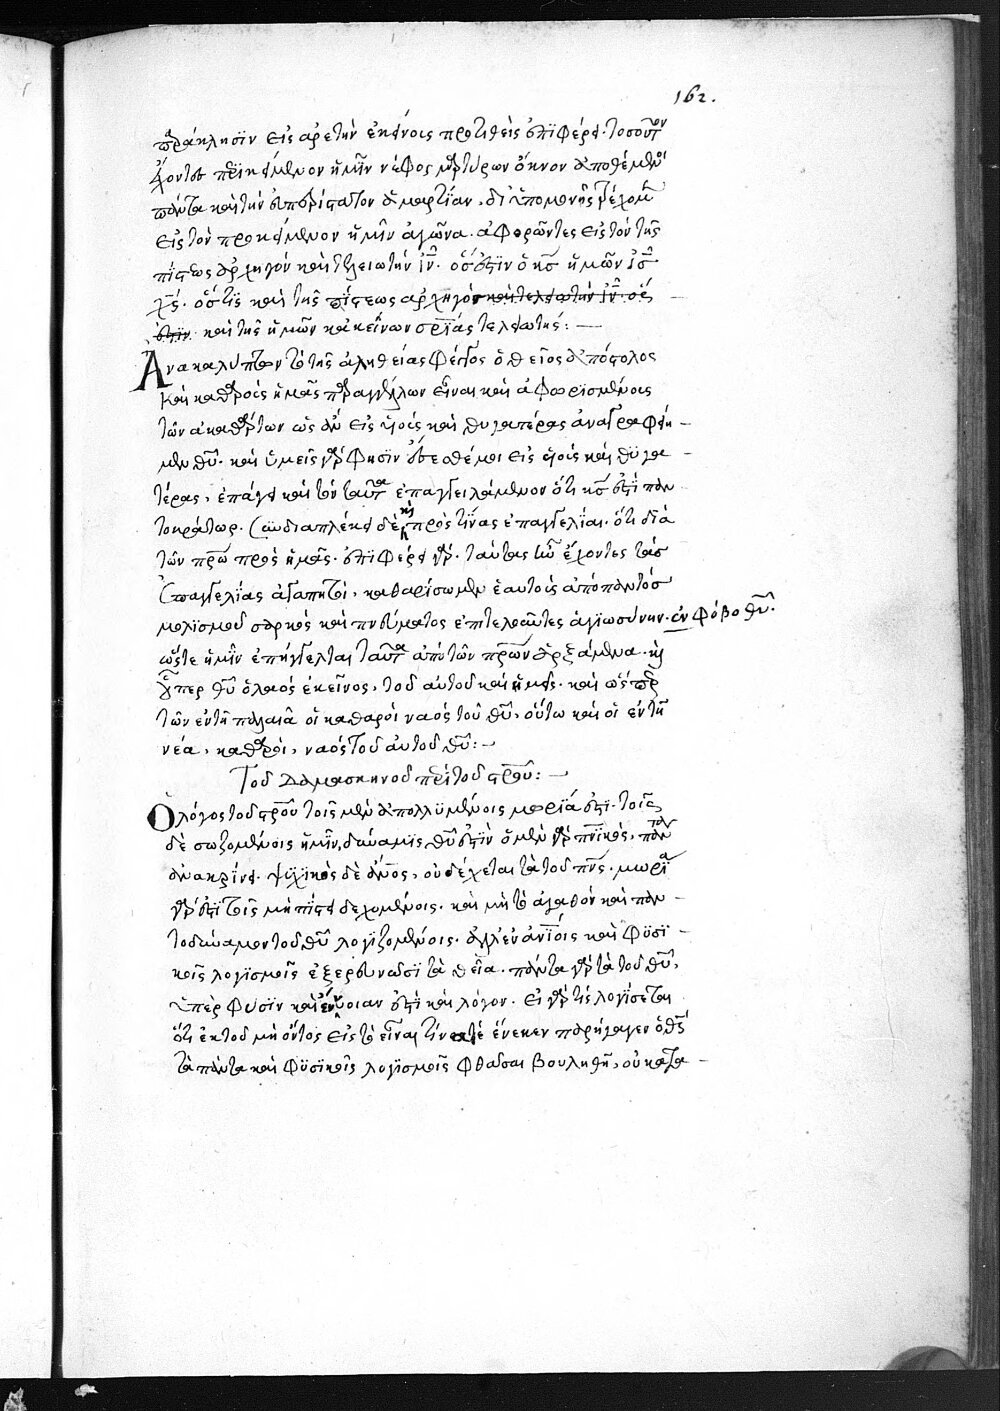 162.
π̅ράκλησιν εἰς ἀρετὴν ἐκείνοις προτιθεὶς ἐπιφέρει. τοσοῦτον
ἔχοντες περικείμενον ἡμῖν νέφος μαρτύρων ὄκνον ἀποθέμενοι
πάντα καὶ τὴν εὐπερίστατον ἁμαρτίαν, δι ὑπομονῆς τρέχομεν
εἰς τὸν προκείμενον ἡμῖν ἀγῶνα. ἀφορῶντες εἰς τὸν τῆς
πίστεως ἀρχηγὸν καὶ τελειωτὴν ι̅ν̅. ὅς ἐστιν ὁ κ̅ς̅ ἡμῶν ι̅ς̅
χ̅ς̅. ὅστις καὶ τῆς πίστεως ἀρχηγὸς καὶ τελειωτὴν ι̅ν̅. ὅς
ἐστιν. καὶ τῆς ἡμῶν κἀκείνων σ̅ρίας τελειωτής:—
Ἀνακαλύπτων τὸ τῆς ἀληθείας φέγγος ὁ θεῖος ἀπόστολος
καὶ καθαροὺς ἡμᾶς παραγγέλλων εἶναι καὶ ἀφωρισμένους
τῶν ἀκαθάρτων ὡς ἂν εἰς υἱοὺς καὶ θυγατέρας ἀναγραφεί-
μεν θ̅υ̅. καὶ ὑμεῖς γάρ φησιν ἔσεσθέ μοι εἰς υἱοὺς καὶ θυγα-
τέρας, ἐπάγει καὶ τὸν ταῦτα ἐπαγγειλάμενον ὅτι κ̅ς̅ ἐστι παν-
τοκράτωρ. συνδιαπλέκει δὲ καὶ πρὸς τίνας ἐπαγγελίαι. ὅτι διὰ
τῶν πρώ πρὸς ἡμᾶς. ἐπιφέρει γάρ. ταύτας οὖν ἔχοντες τὰς
ἐπαγγελίας ἀγαπητοί, καθαρίσωμεν ἑαυτοὺς ἀπὸ παντὸς
μολυσμοῦ σαρκὸς καὶ πνεύματος ἐπιτελοῦντες ἁγιωσύνην. ἐν φόβο θ̅υ̅.
ὥστε ἡμῖν ἐπήγγελται ταῦτα ἀπὸ τῶν πρώων ἀρξάμενα. καὶ
οὗπερ θ̅υ̅ ὁ λαὸς ἐκεῖνος, τοῦ αὐτοῦ καὶ ἡμεῖς. καὶ ὥσπερ
τῶν ἐν τῇ παλαιᾶ οἱ καθαροὶ ναὸς τοῦ θ̅υ̅, οὕτω καὶ οἱ ἐν τῇ
νέα, καθαροὶ, ναὸς τοῦ αὐτοῦ θ̅υ̅:—
Τοῦ Δαμασκηνοῦ περὶ τοῦ σ̅ρ̅οῦ:—
Ὁ λόγος τοῦ σ̅ρ̅οῦ τοῖς μὲν ἀπολλυμένοις μωρία ἐστί. τοῖς
δὲ σωζομένοις ἡμῖν, δύναμις θ̅υ̅ ἐστίν ὁ μὲν γὰρ π̅ν̅ικὸς, πάντα
ἀνακρίνει. ψυχικὸς δὲ ἄ̅ν̅ος, οὐ δέχεται τὰ τοῦ π̅ν̅ς. μωρία
γάρ ἐστι τοῖς μὴ πίστει δεχομένοις. καὶ μὴ τὸ ἀγαθὸν καὶ παν-
τοδύναμον τοῦ θ̅υ̅ λογιζομένοις. ἀλλ' ἐν ἀ̅ν̅ίνοις καὶ φυσι-
κοῖς λογισμοῖς ἐξερευνῶσι τὰ θεῖα. πάντα γὰρ τὰ τοῦ θ̅υ̅,
ὑπὲρ φύσιν καὶ ἔννοιαν ἐστὶ καὶ λόγον. Εἰ γάρ τις λογίσεται
ὅτι ἐκ τοῦ μὴ ὄντος εἰς τὸ εἶναι τίνος τε ἕνεκεν παρήγαγεν ὁ θ̅ς̅
τὰ πάντα καὶ φυσικοῖς λογισμοῖς φθάσαι βουληθῇ, οὐ κατα-